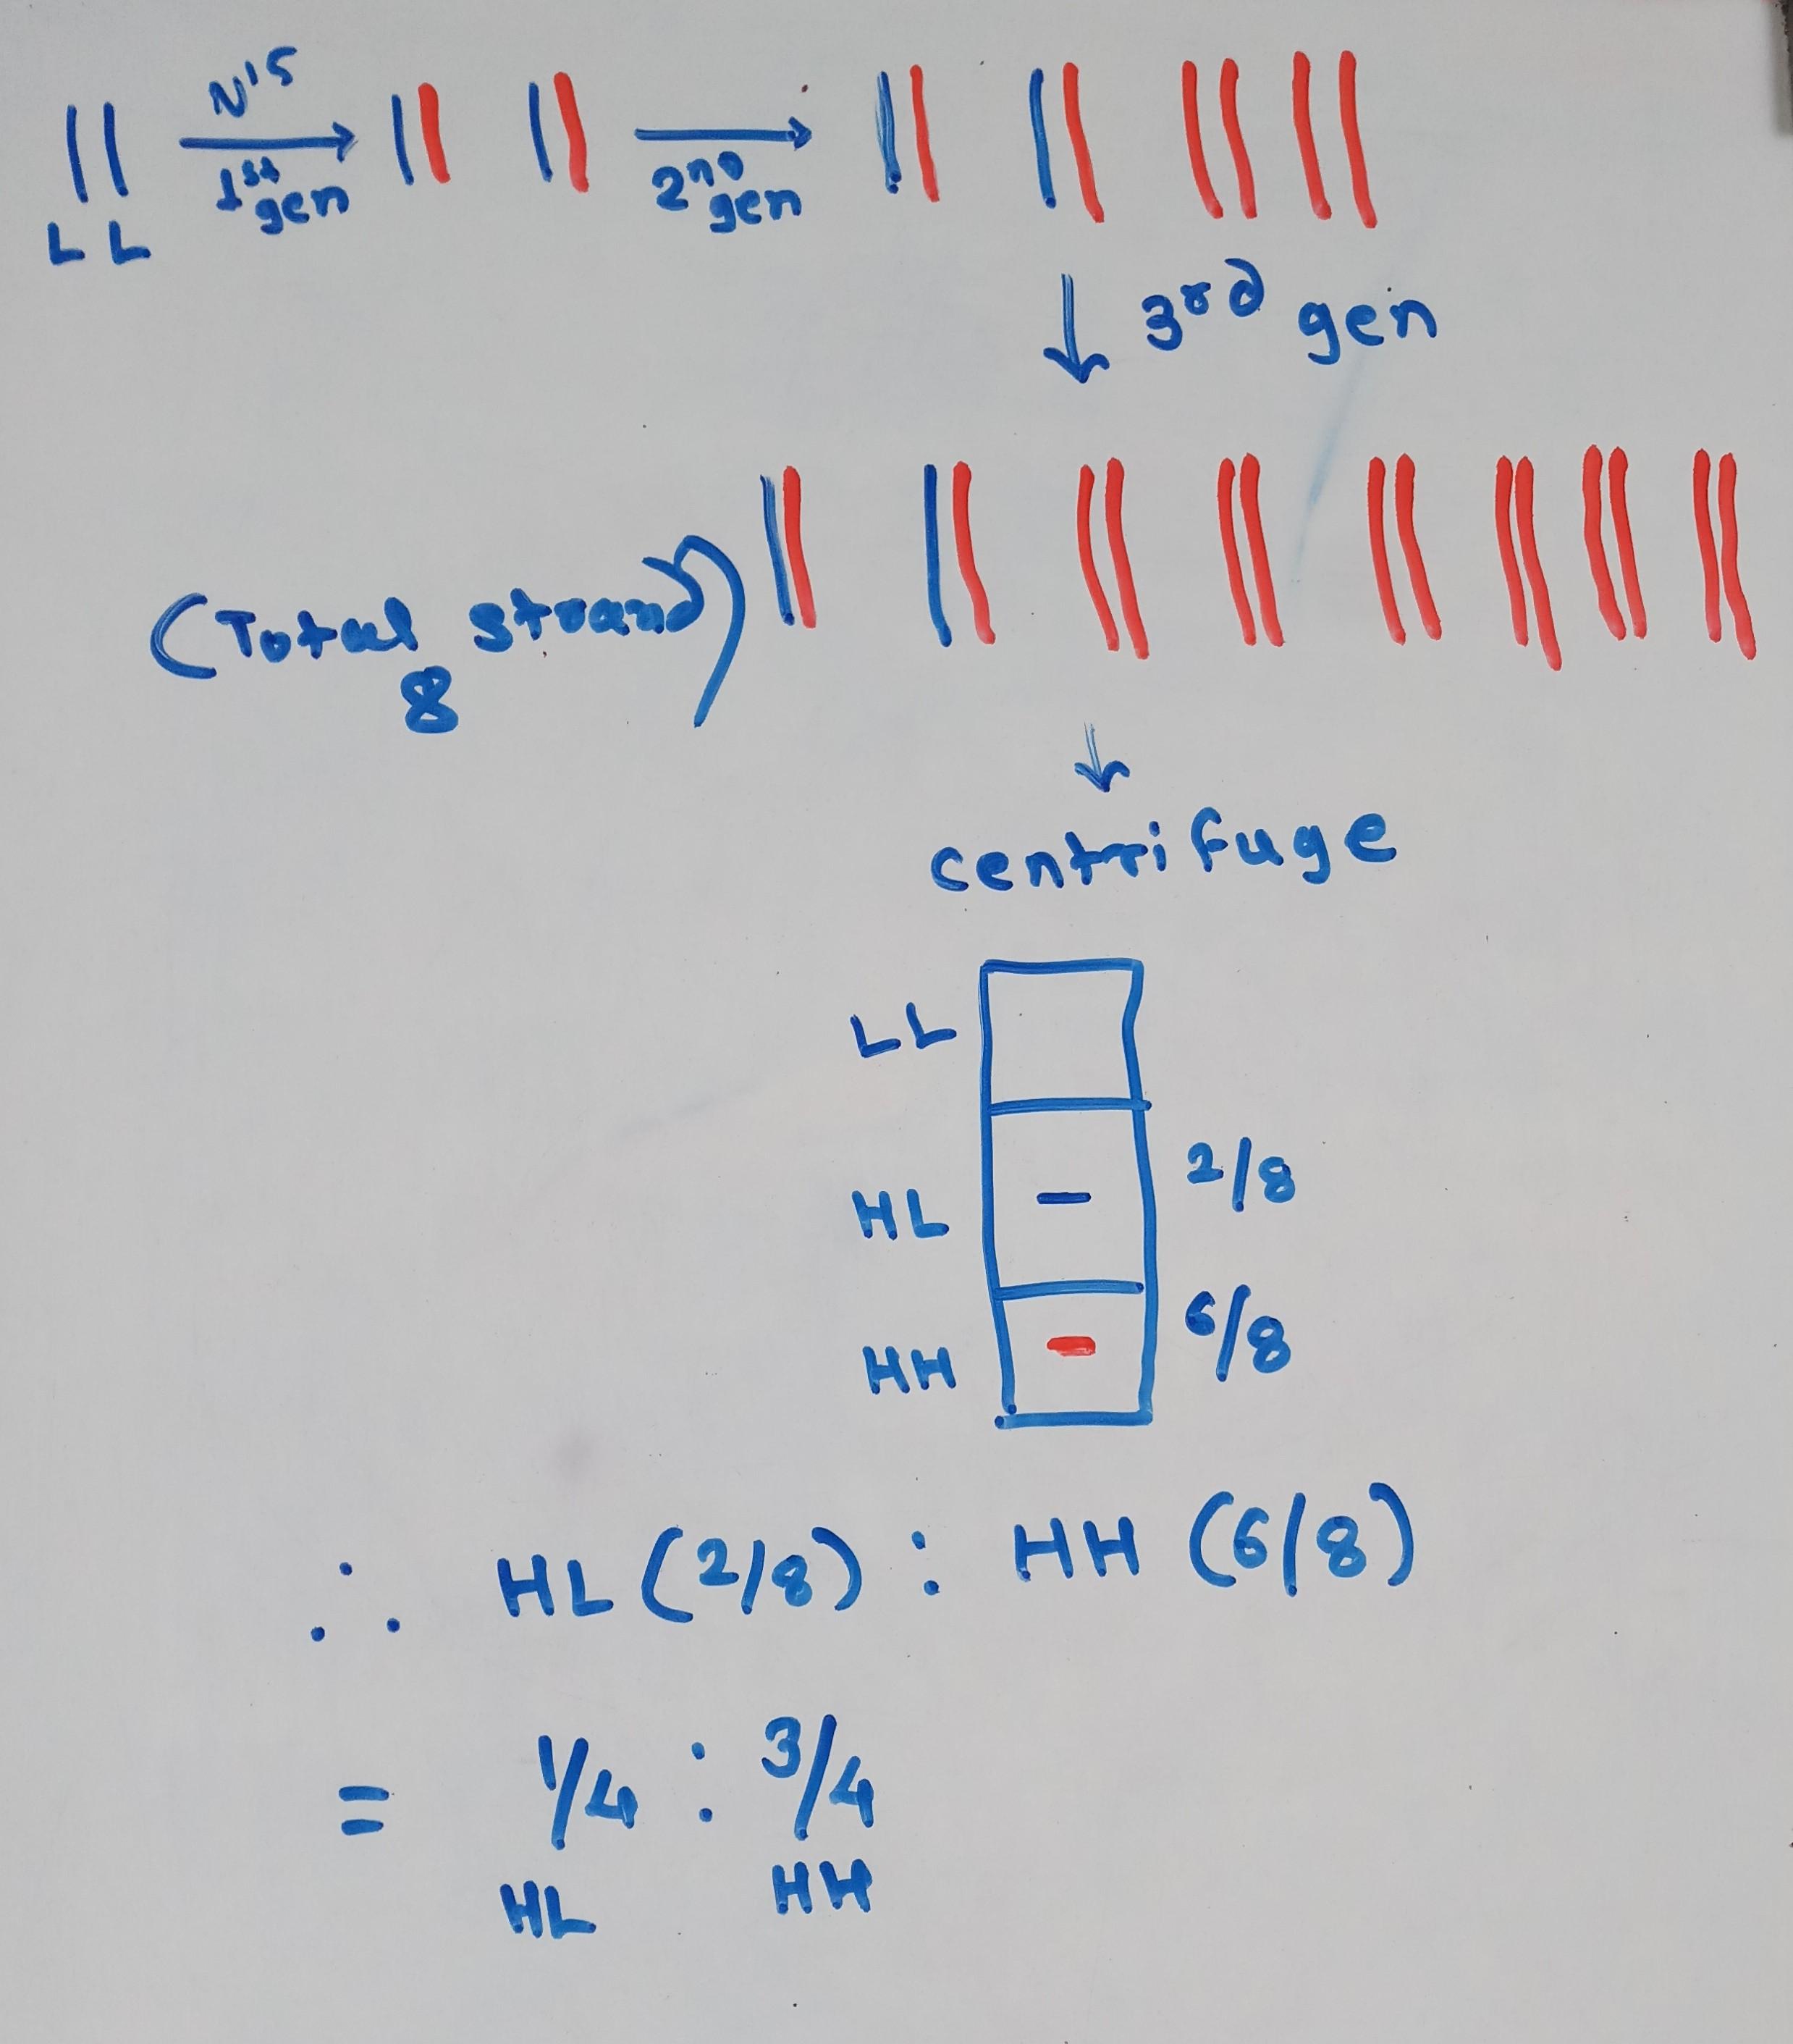 N15
1st gen
2nd gen
L L
3rd gen
(Total strand)
8
centrifuge
LL
HL 2/8
HH 6/8
∴ HL (2/8) : HH (6/8)
= 1/4 : 3/4
HL HH